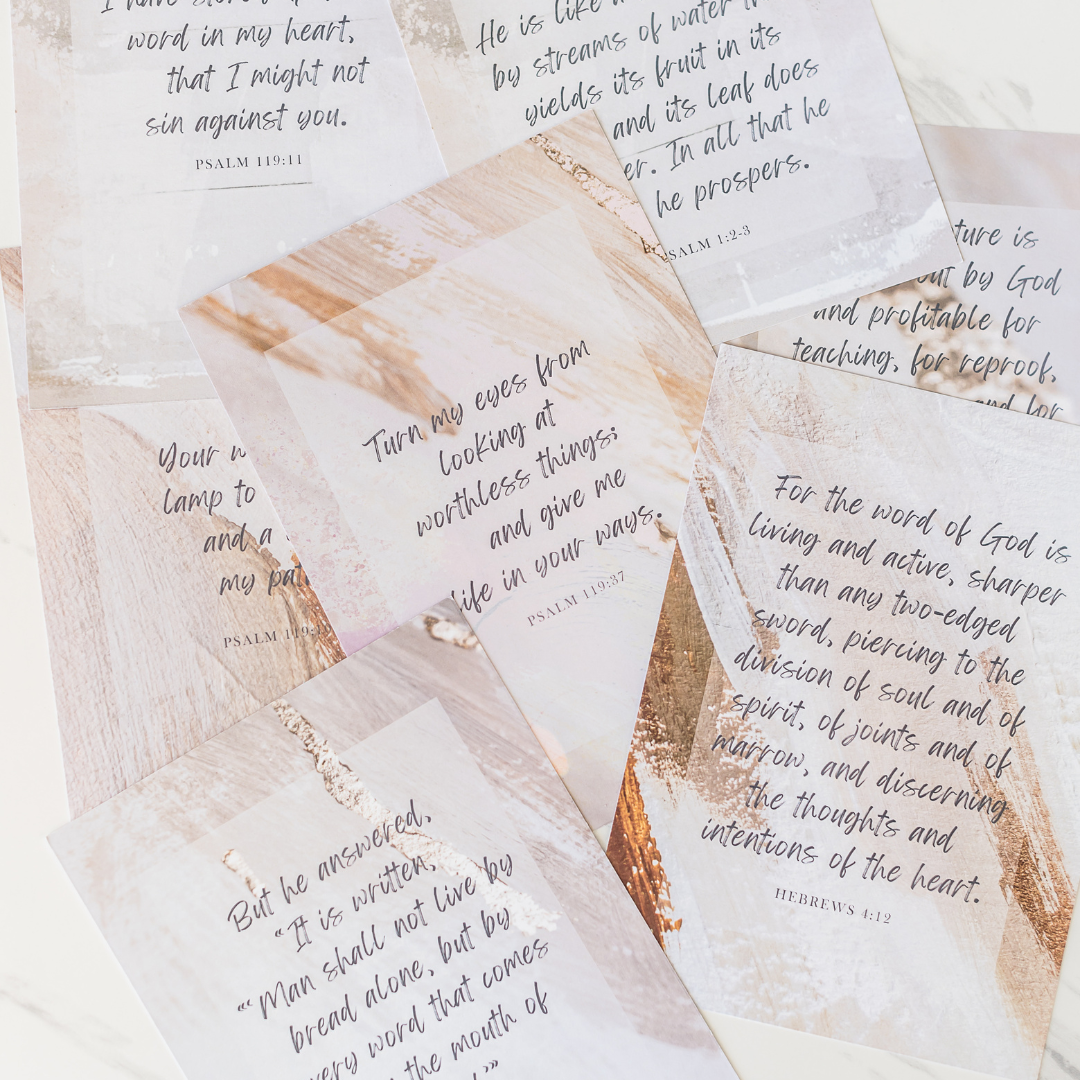 I have stored up your
word in my heart,
that I might not
sin against you.
PSALM 119:11
He is like a
by streams of water
yields its fruit in its
and its leaf does
er. In all that he
he prospers.
SALM 1:2-3
ture is
out by God
and profitable for
teaching, for reproof,
and for
Your w
lamp to
and a
my pat
PSALM 119:
Turn my eyes from
looking at
worthless things;
and give me
life in your ways.
PSALM 119:37
For the word of God is
living and active, sharper
than any two-edged
sword, piercing to the
division of soul and of
spirit, of joints and of
marrow, and discerning
the thoughts and
intentions of the heart.
HEBREWS 4:12
But he answered,
“It is written,
“‘Man shall not live by
bread alone, but by
very word that comes
the mouth of
’”